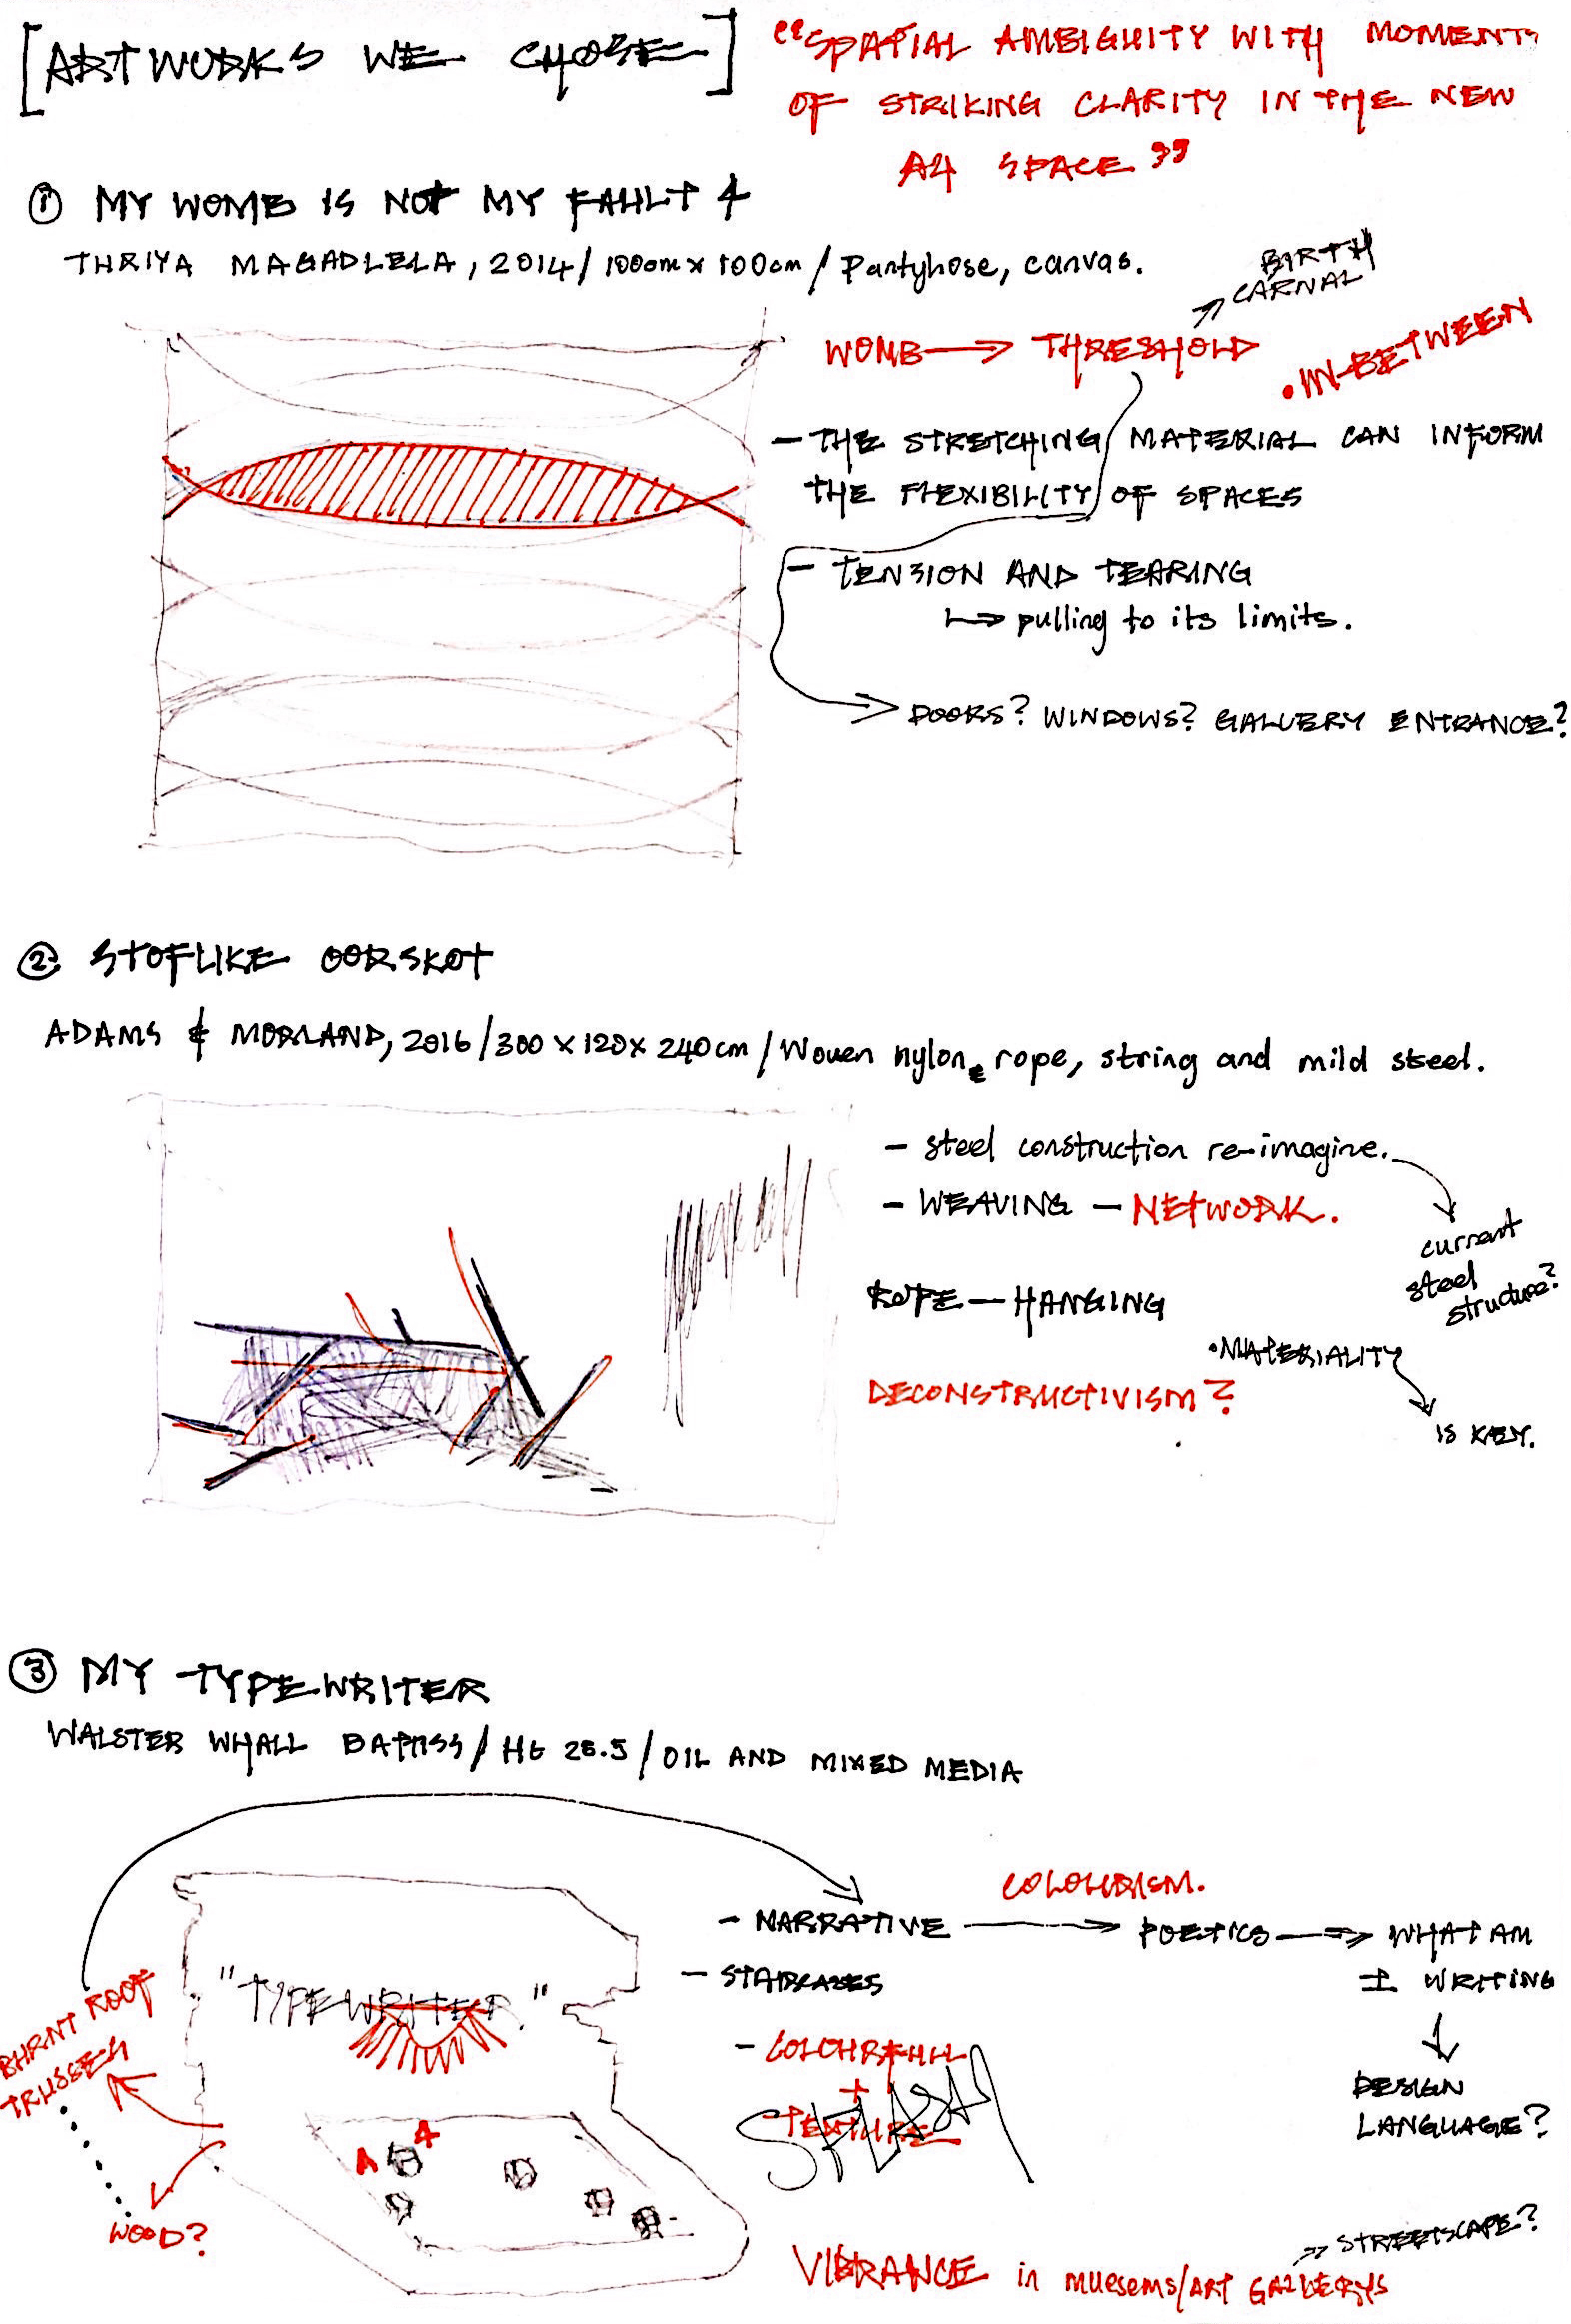 [ARTWORKS WE CHOSE]
"SPATIAL AMBIGUITY WITH MOMENTS
OF STRIKING CLARITY IN THE NEW
A4 SPACE"
① MY WOMB IS NOT MY FAULT 4
THRIYA MAGADLELA, 2014/ 1000m x 100cm / Pantyhose, canvas.
BIRTH
CARNAL
WOMB → THRESHOLD
• IN-BETWEEN
- THE STRETCHING MATERIAL CAN INFORM
THE FLEXIBILITY OF SPACES
- TENSION AND TEARING
↳ pulling to its limits.
→ DOORS? WINDOWS? GALLERY ENTRANCE?
② STOFLIKE OORSKOT
ADAMS & MORLAND, 2016/300 x 120 x 240cm / Woven nylon, rope, string and mild steel.
- steel construction re-imagine.
- WEAVING - NETWORK.
current
steel
structure?
ROPE - HANGING
• MATERIALITY
DECONSTRUCTIVISM?
IS KEY.
③ MY TYPEWRITER
WALSTER WHALL / H6 28.5 / OIL AND MIXED MEDIA
COLOURISM.
- NARRATIVE → POETICS → WHAT AM
I WRITING
- STAIRCASES
"TYPEWRITER"
BURNT ROOF
TRUSSES
- COLOURFULL
+
TEXTURE
SPLASH
DESIGN
LANGUAGE?
A 4
WOOD?
STREETSCAPE?
VIBRANCE in MUESEMS/ART GALLERYS